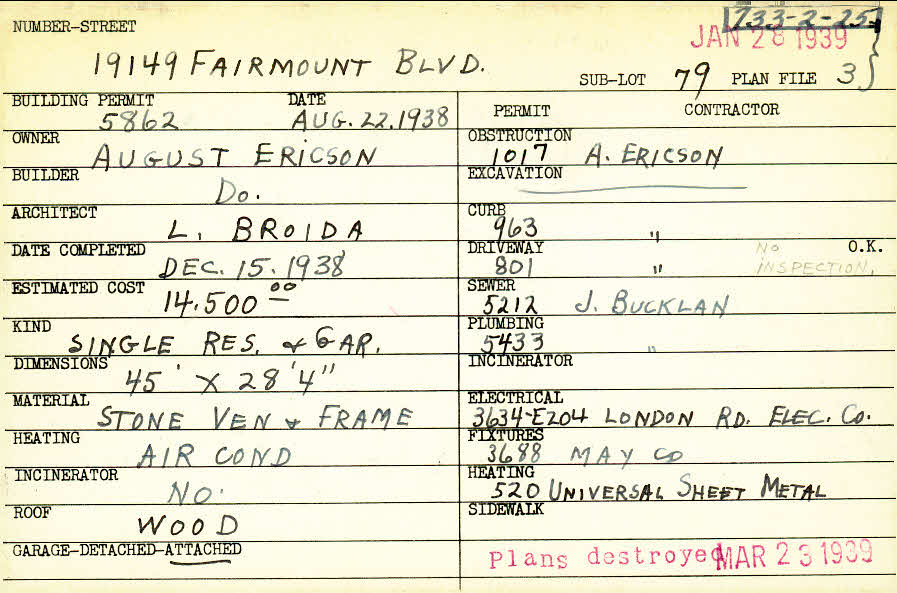 733-2-25
NUMBER-STREET
JAN 28 1939
19149 FAIRMOUNT BLVD.
SUB-LOT 79 PLAN FILE 3
BUILDING PERMIT DATE
5862 AUG. 22. 1938
OWNER
AUGUST ERICSON
BUILDER
Do.
ARCHITECT
L. BROIDA
DATE COMPLETED
DEC. 15. 1938
ESTIMATED COST
14.500 00
KIND
SINGLE RES. & GAR.
DIMENSIONS
45' X 28'4"
MATERIAL
STONE VEN & FRAME
HEATING
AIR COND
INCINERATOR
NO.
ROOF
WOOD
GARAGE-DETACHED-ATTACHED
PERMIT CONTRACTOR
OBSTRUCTION
1017 A. ERICSON
EXCAVATION
CURB
963 "
DRIVEWAY NO O.K.
801 " INSPECTION.
SEWER
5212 J. BUCKLAN
PLUMBING
5433 "
INCINERATOR
ELECTRICAL
3634-E204 LONDON RD. ELEC. CO.
FIXTURES
3688 MAY CO
HEATING
520 UNIVERSAL SHEET METAL
SIDEWALK
Plans destroyed MAR 23 1939